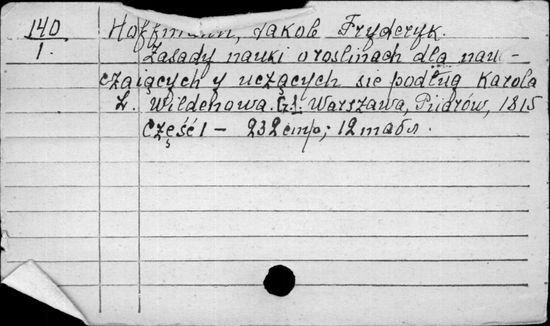 140 Hoffmann, Jakob Fryderyk.
1. Zasady nauki o roslinach dla nau-
czaiących y uczących sie podług Karola
L. Wildenowa. Cz. 1. Warszawa, Piiarów, 1815
Część 1 - 232 стр; 12 табл.